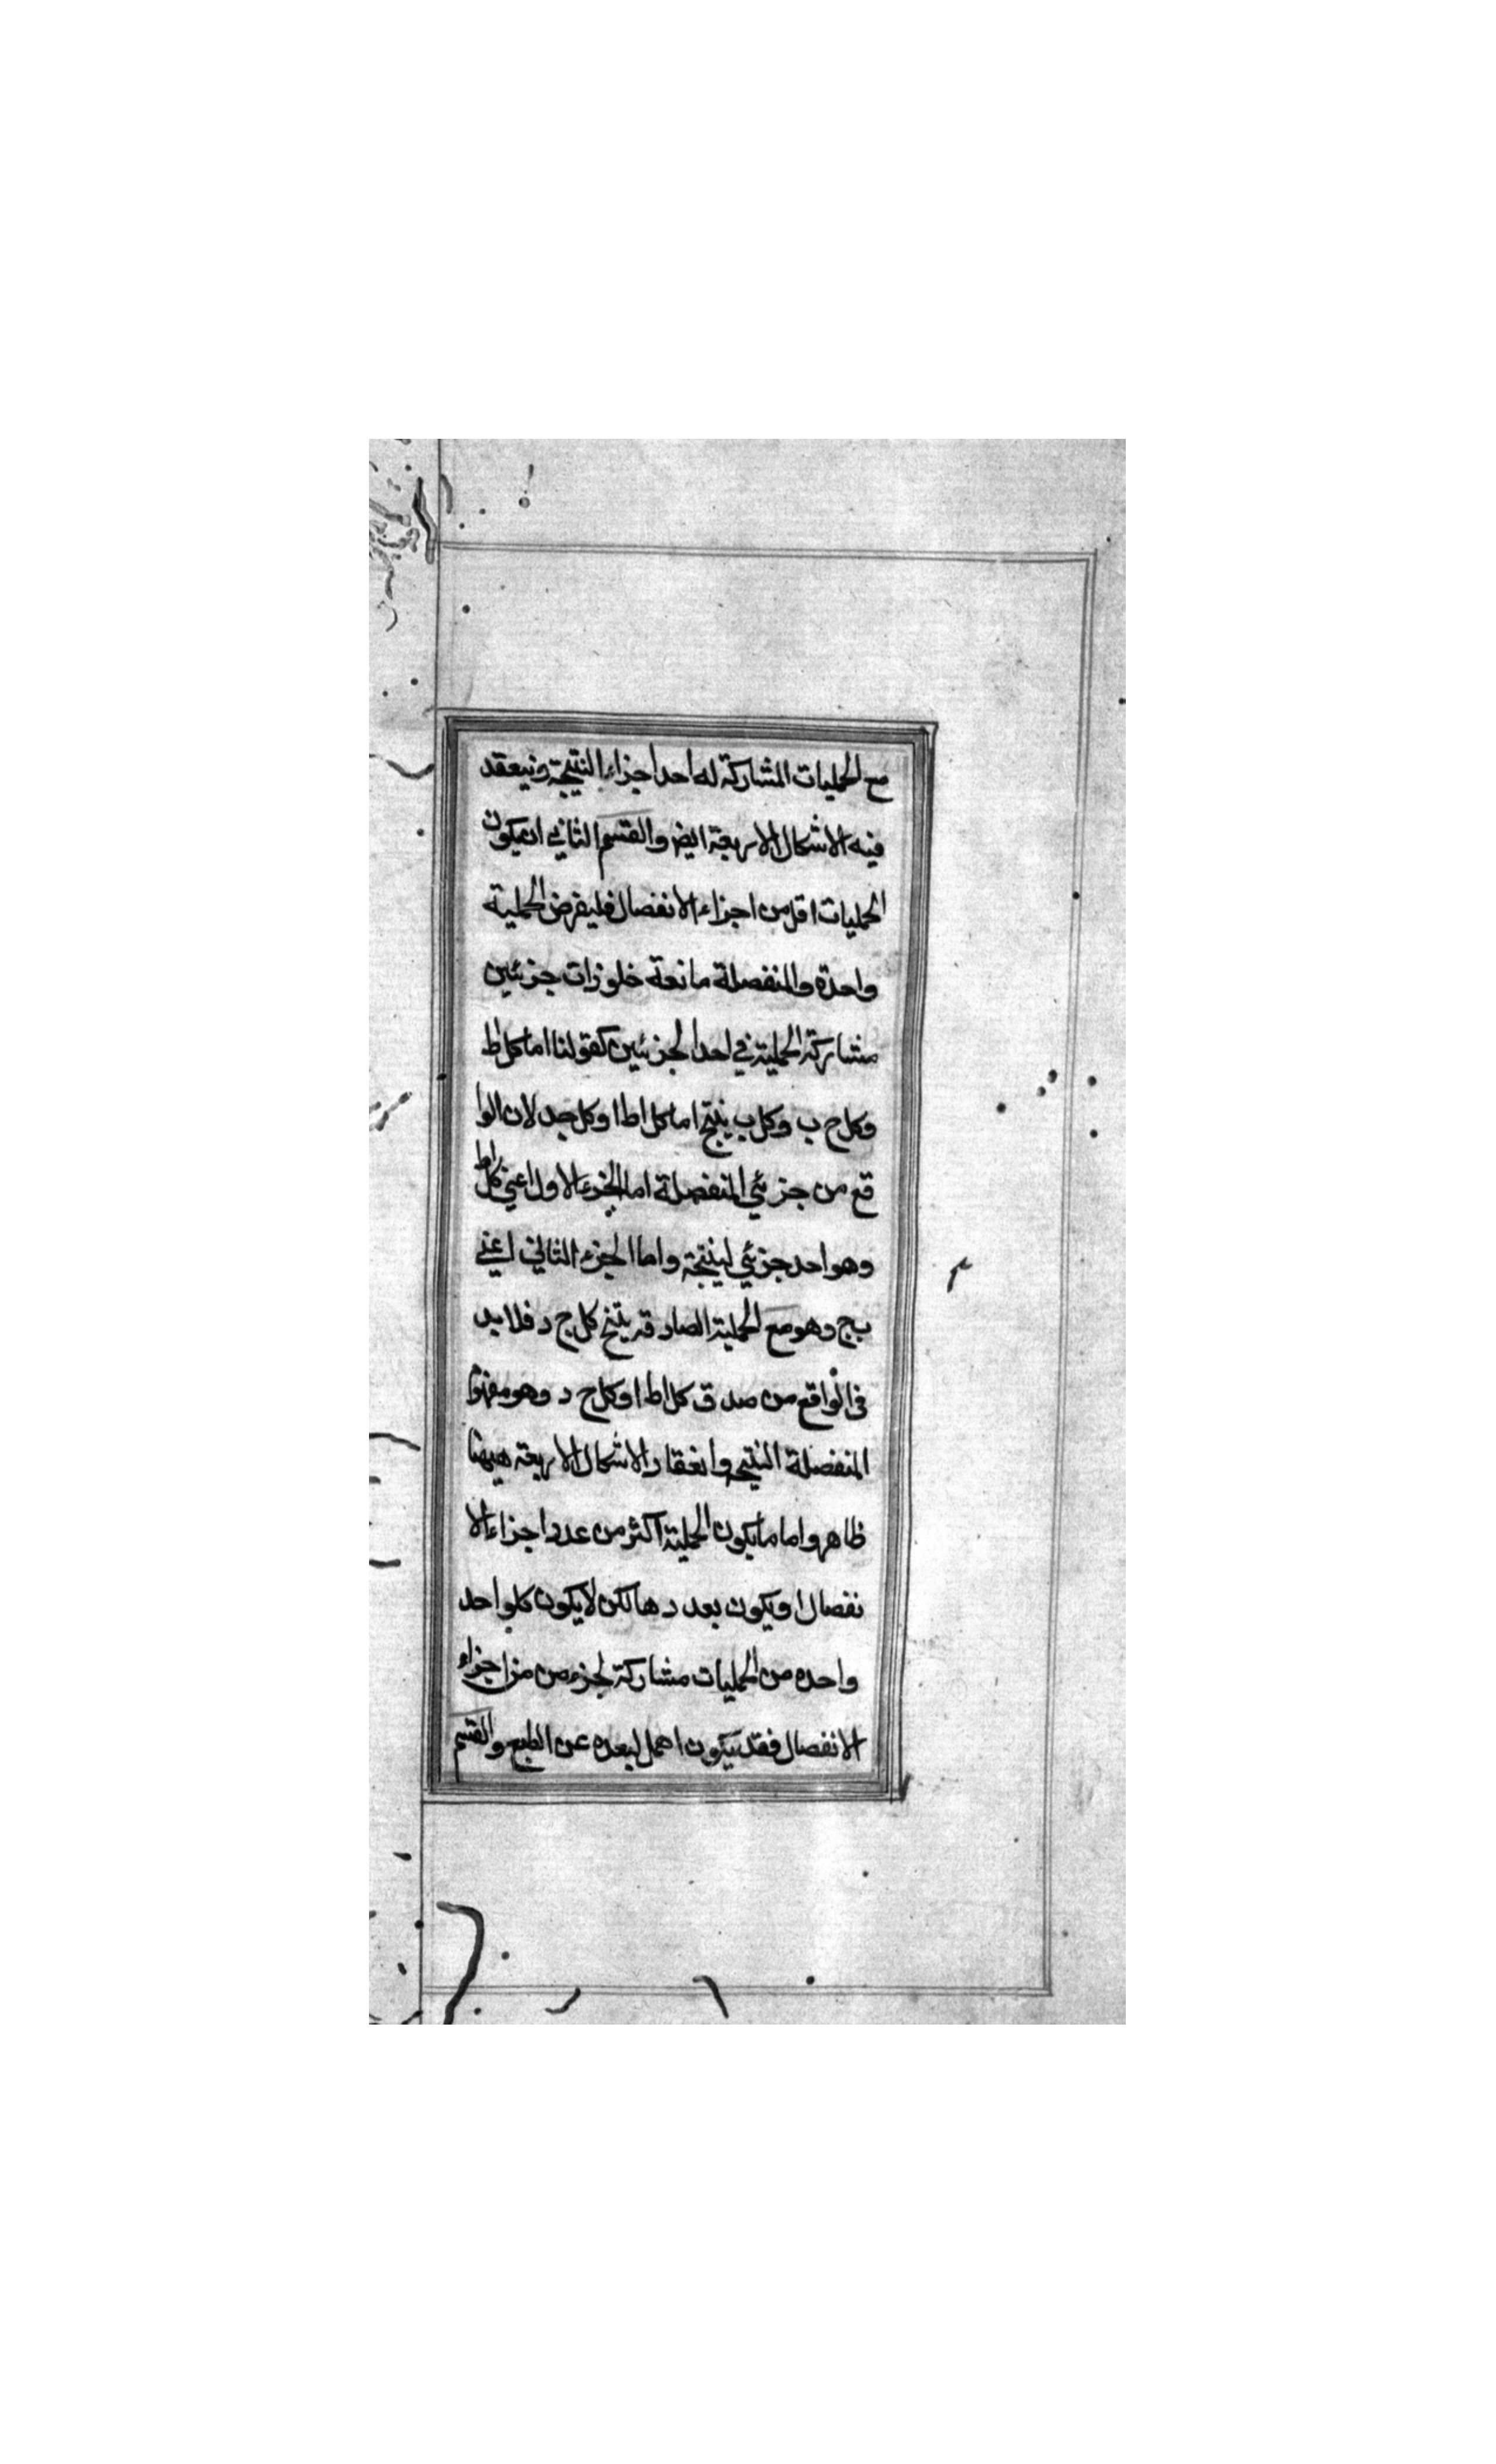 مع الحمليات المشاركة له احد اجزاء النتيجة وينعقد
فيه الاشكال الاربعة ايض والقسم الثاني ان يكون
الحمليات اقل من اجزاء الانفصال فليفرض الحملية
واحدة والمنفصلة مانعة خلو زات جزئين
مشاركة الحملية في احد الجزئين كقولنا اما كل اط
وكل ج ب وكل ب ينتج اما كل اط او كل جد لان الوا
قع من جزئي المنفصلة اما الجزء الاول اعني كل اط
وهو احد جزئي لينتجة واما الجزء الثاني اعني
بج وهو مع الحملية الصادقة ينتج كل ج د فلا بد
في الواقع من صدق كل اط او كل ج د وهو مفهوا
المنفصلة النتيجه وانعقاد الاشكال الاربعة ههنا
ظاهر واما ما يكون الحملية اكثر من عدد اجزاء الا
نفصال او يكون بعددها لكن لا يكون كلواحد
واحده من الحمليات مشاركة لجزء من من اجزاء
الانفصال فقد يكون اهمل لبعده عن الطبع والقسم